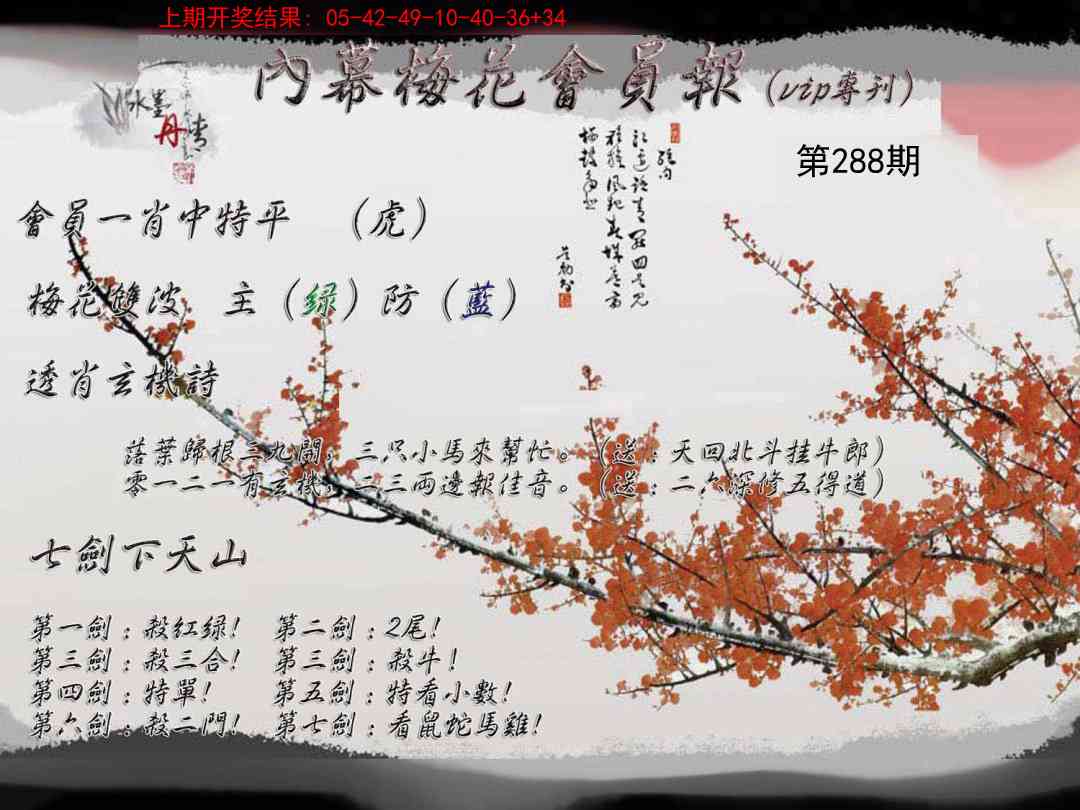 上期开奖结果: 05-42-49-10-40-36+34
內幕梅花會員報(vip專刊)
水墨丹青
第288期
會員一肖中特平 (虎)
梅花雙波 主(绿)防(藍)
透肖玄機詩
落葉歸根三九開,三只小馬來幫忙。(送:天回北斗挂牛郎)
零一二一有玄機,二三兩邊報佳音。(送:二六深修五得道)
七劍下天山
第一劍:殺紅绿! 第二劍:2尾!
第三劍:殺三合! 第三劍:殺牛!
第四劍:特單! 第五劍:特看小數!
第六劍:殺二門! 第七劍:看鼠蛇馬雞!